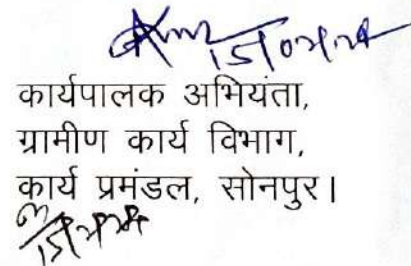 कार्यपालक अभियंता,
ग्रामीण कार्य विभाग,
कार्य प्रमंडल, सोनपुर।